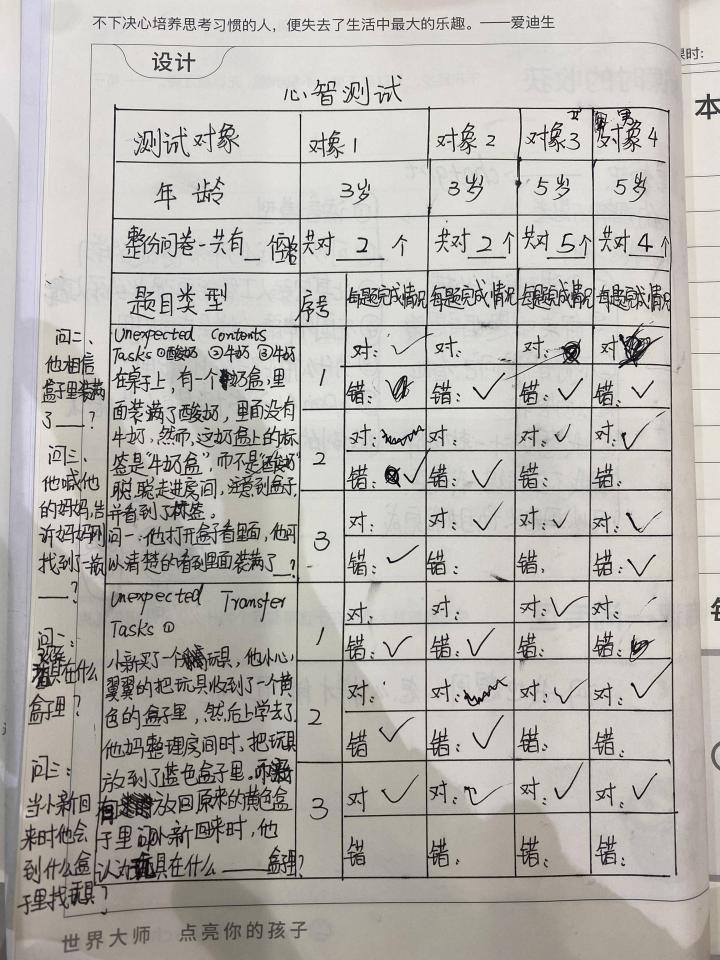 不下决心培养思考习惯的人，便失去了生活中最大的乐趣。——爱迪生
设计
课时:
本
心智测试
女 男
测试对象 对象1 对象2 对象3 对象4
年龄 3岁 3岁 5岁 5岁
整份问卷一共有__ 共对 2 个 共对 2 个 共对 5 个 共对 4 个
题目类型 序号 每题完成情况 每题完成情况 每题完成情况 每题完成情况
Unexpected Contents
Tasks ①酸奶 ②牛奶 ③牛奶
在桌子上，有一个奶盒，里
面装满了酸奶，里面没有
牛奶，然而，这奶盒上的标
签是“牛奶盒”，而不是“酸奶”
聪聪走进房间，注意到盒子，
并看到了标签。
问一、他打开盒子看里面，他可
以清楚的看到里面装满了__？
问二、
他相信
盒子里装满
了__？
问三、
他喊他
的妈妈，告
诉妈妈
找到了一瓶
__？
1 对：✓ 对： 对： 对
错： 错：✓ 错：✓ 错：✓
2 对： 对： 对：✓ 对：✓
错：✓ 错：✓ 错： 错：
3 对： 对：✓ 对：✓ 对：✓
错：✓ 错： 错. 错：✓
Unexpected Transfer
Tasks ①
小新买了一个玩具，他小心
翼翼的把玩具收到了一个黄
色的盒子里，然后上学去了
他妈整理房间时，把玩具
放到了蓝色盒子里。
放回原来的黄色盒
子里 问 小新回来时，他
认为玩具在什么____盒子里？
问一：
玩具在什么
盒子里？
问三：
当小新回
来时他会
到什么盒
子里找玩具？
1 对： 对： 对：✓ 对：
错：✓ 错：✓ 错： 错：
2 对： 对： 对：✓ 对：✓
错 ✓ 错：✓ 错： 错：
3 对 ✓ 对：✓ 对：✓ 对：✓
错 错： 错： 错：
世界大师 点亮你的孩子